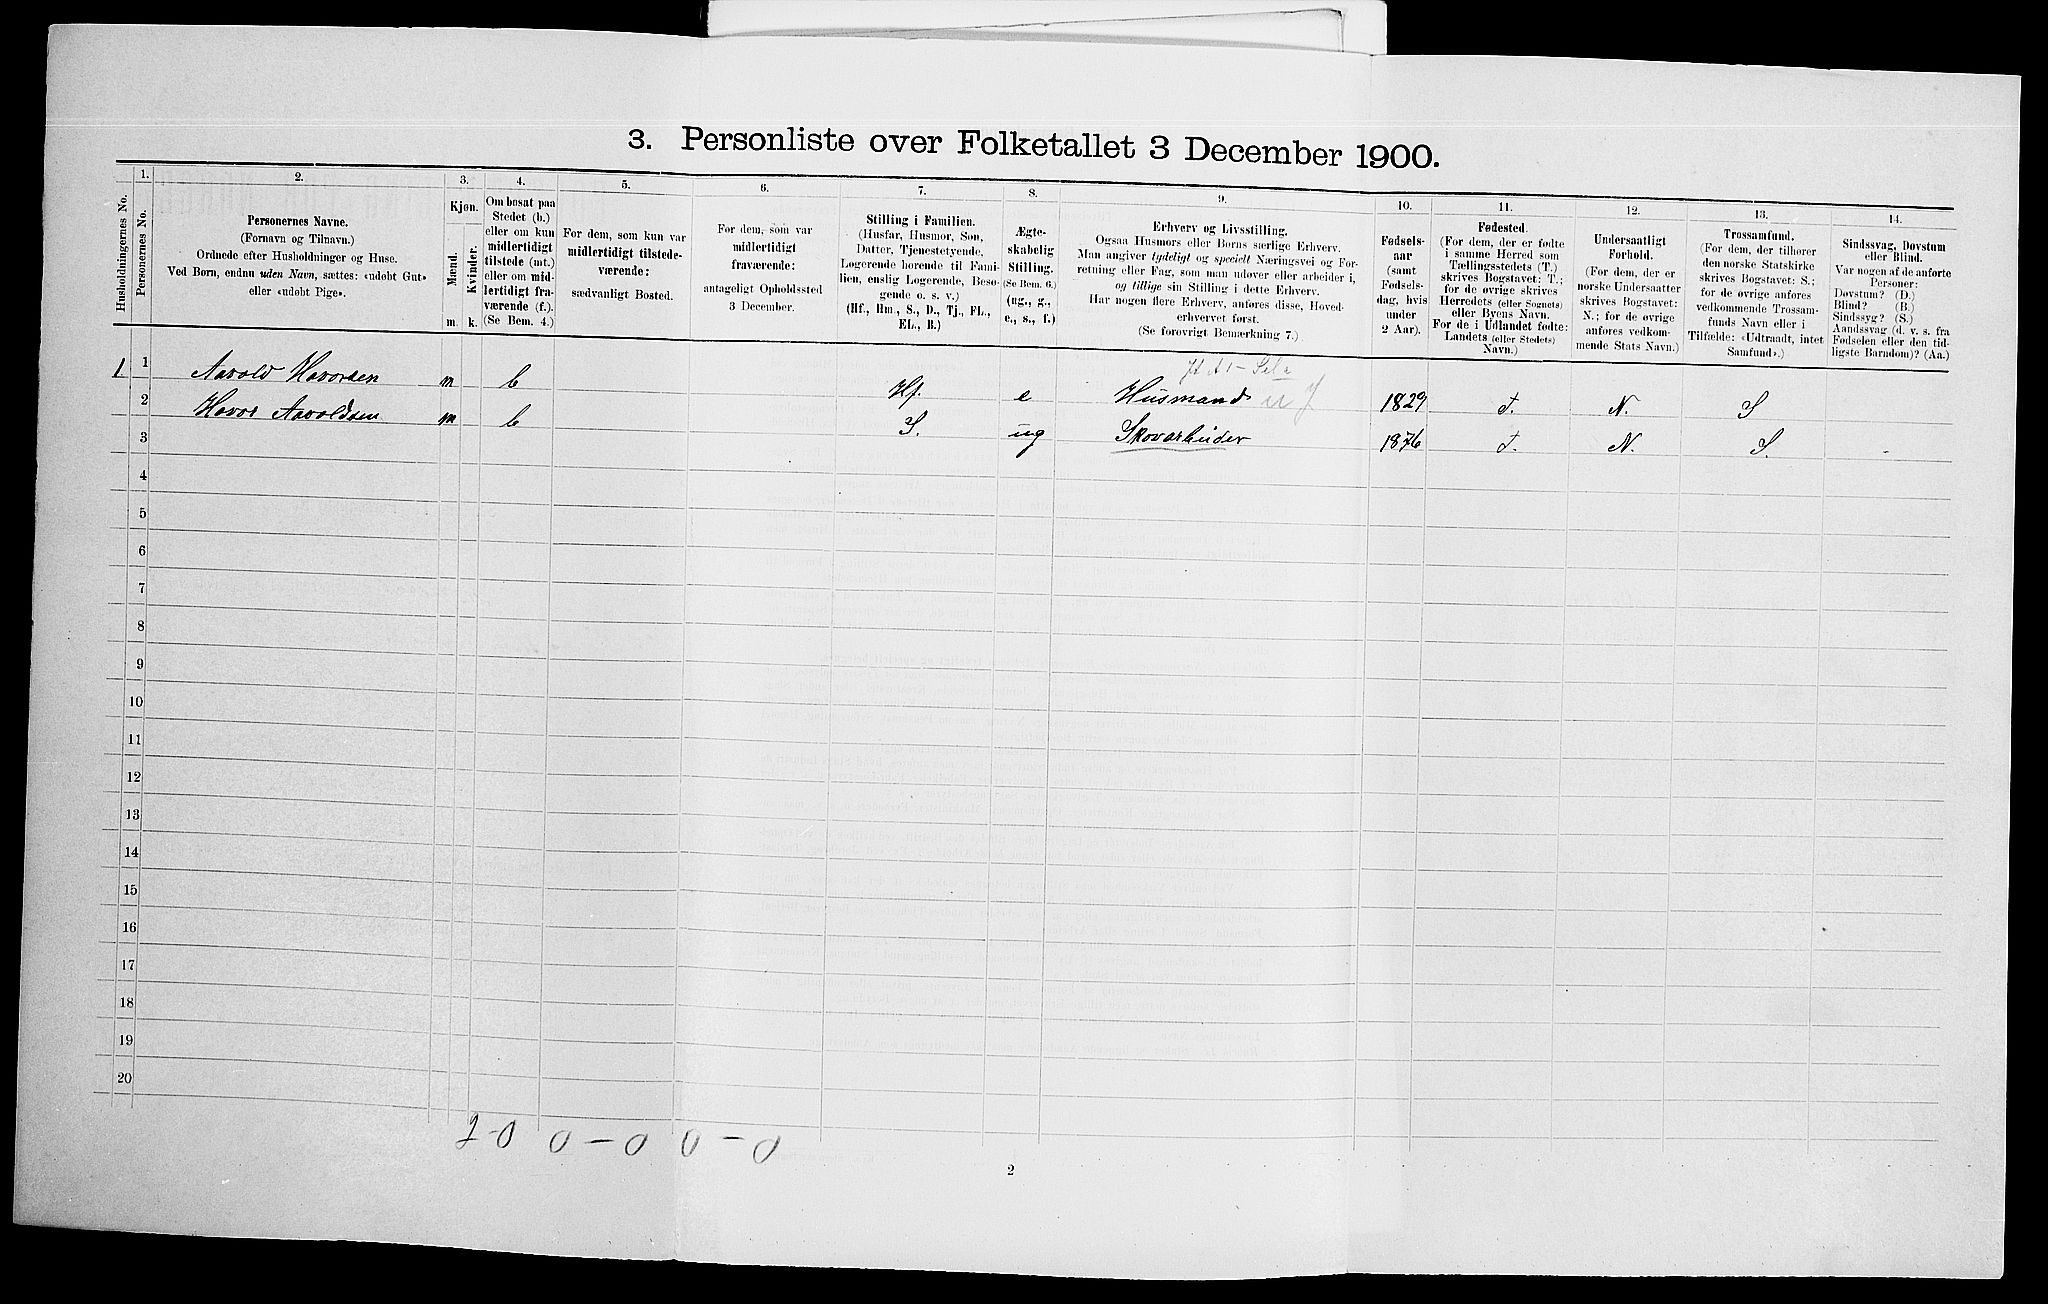 3. Personliste over Folketallet 3 December 1900.
Husholdningernes No.
1.
Personernes No.
2.
Personernes Navne.
(Fornavn og Tilnavn.)
Ordnede efter Husholdninger og Huse.
Ved Børn, endnu uden Navn, sættes: «udøbt Gut»
eller «udøbt Pige».
3.
Kjøn.
Mænd.
Kvinder.
m. k.
4.
Om bosat paa
Stedet (b.)
eller om kun
midlertidigt
tilstede (mt.)
eller om mid-
lertidigt fra-
værende (f.).
(Se Bem. 4.)
5.
For dem, som kun var
midlertidigt tilstede-
værende:
sædvanligt Bosted.
6.
For dem, som var
midlertidigt
fraværende:
antageligt Opholdssted
3 December.
7.
Stilling i Familien.
(Husfar, Husmor, Søn,
Datter, Tjenestetyende,
Logerende hørende til Fami-
lien, enslig Logerende, Besø-
gende o. s. v.)
(Hf., Hm., S., D., Tj., FL.,
EL., B.)
8.
Ægte-
skabelig
Stilling.
(Se Bem. 6.)
(ug., g.,
e., s., f.)
9.
Erhverv og Livsstilling.
Ogsaa Husmors eller Børns særlige Erhverv.
Man angiver tydeligt og specielt Næringsvei og For-
retning eller Fag, som man udøver eller arbeider i,
og tillige sin Stilling i dette Erhverv.
Har nogen flere Erhverv, anføres disse, Hoved-
erhvervet først.
(Se forøvrigt Bemærkning 7.)
10.
Fødsels-
aar
(samt
Fødsels-
dag, hvis
under
2 Aar).
11.
Fødested.
(For dem, der er fødte
i samme Herred som
Tællingsstedets (T.)
skrives Bogstavet: T.;
for de øvrige skrives
Herredets (eller Sognets)
eller Byens Navn.
For de i Udlandet fødte:
Landets (eller Stedets)
Navn.)
12.
Undersaatligt
Forhold.
(For dem, der er
norske Undersaatter
skrives Bogstavet:
N.; for de øvrige
anføres vedkom-
mende Stats Navn.)
13.
Trossamfund.
(For dem, der tilhører
den norske Statskirke
skrives Bogstavet: S.;
for de øvrige anføres
vedkommende Trossam-
funds Navn eller i
Tilfælde: «Udtraadt, intet
Samfund».)
14.
Sindssvag, Døvstum
eller Blind.
Var nogen af de anførte
Personer:
Døvstum? (D.)
Blind? (B.)
Sindssyg? (S.)
Aandssvag (d. v. s. fra
Fødselen eller den tid-
ligste Barndom)? (Aa.)
1 1 Aavold Havorsen m b Hf. e Husmand 1829 T. N. S
2 Havor Aavoldsen m b S. ug Skovarbeider 1876 T. N. S. -
3
4
5
6
7
8
9
10
11
12
13
14
15
16
17
18
19
20
2-0 0-0 0-0
2